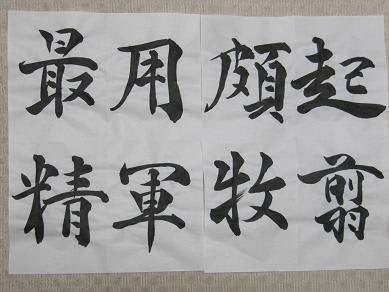 起翦
頗牧
用軍
最精